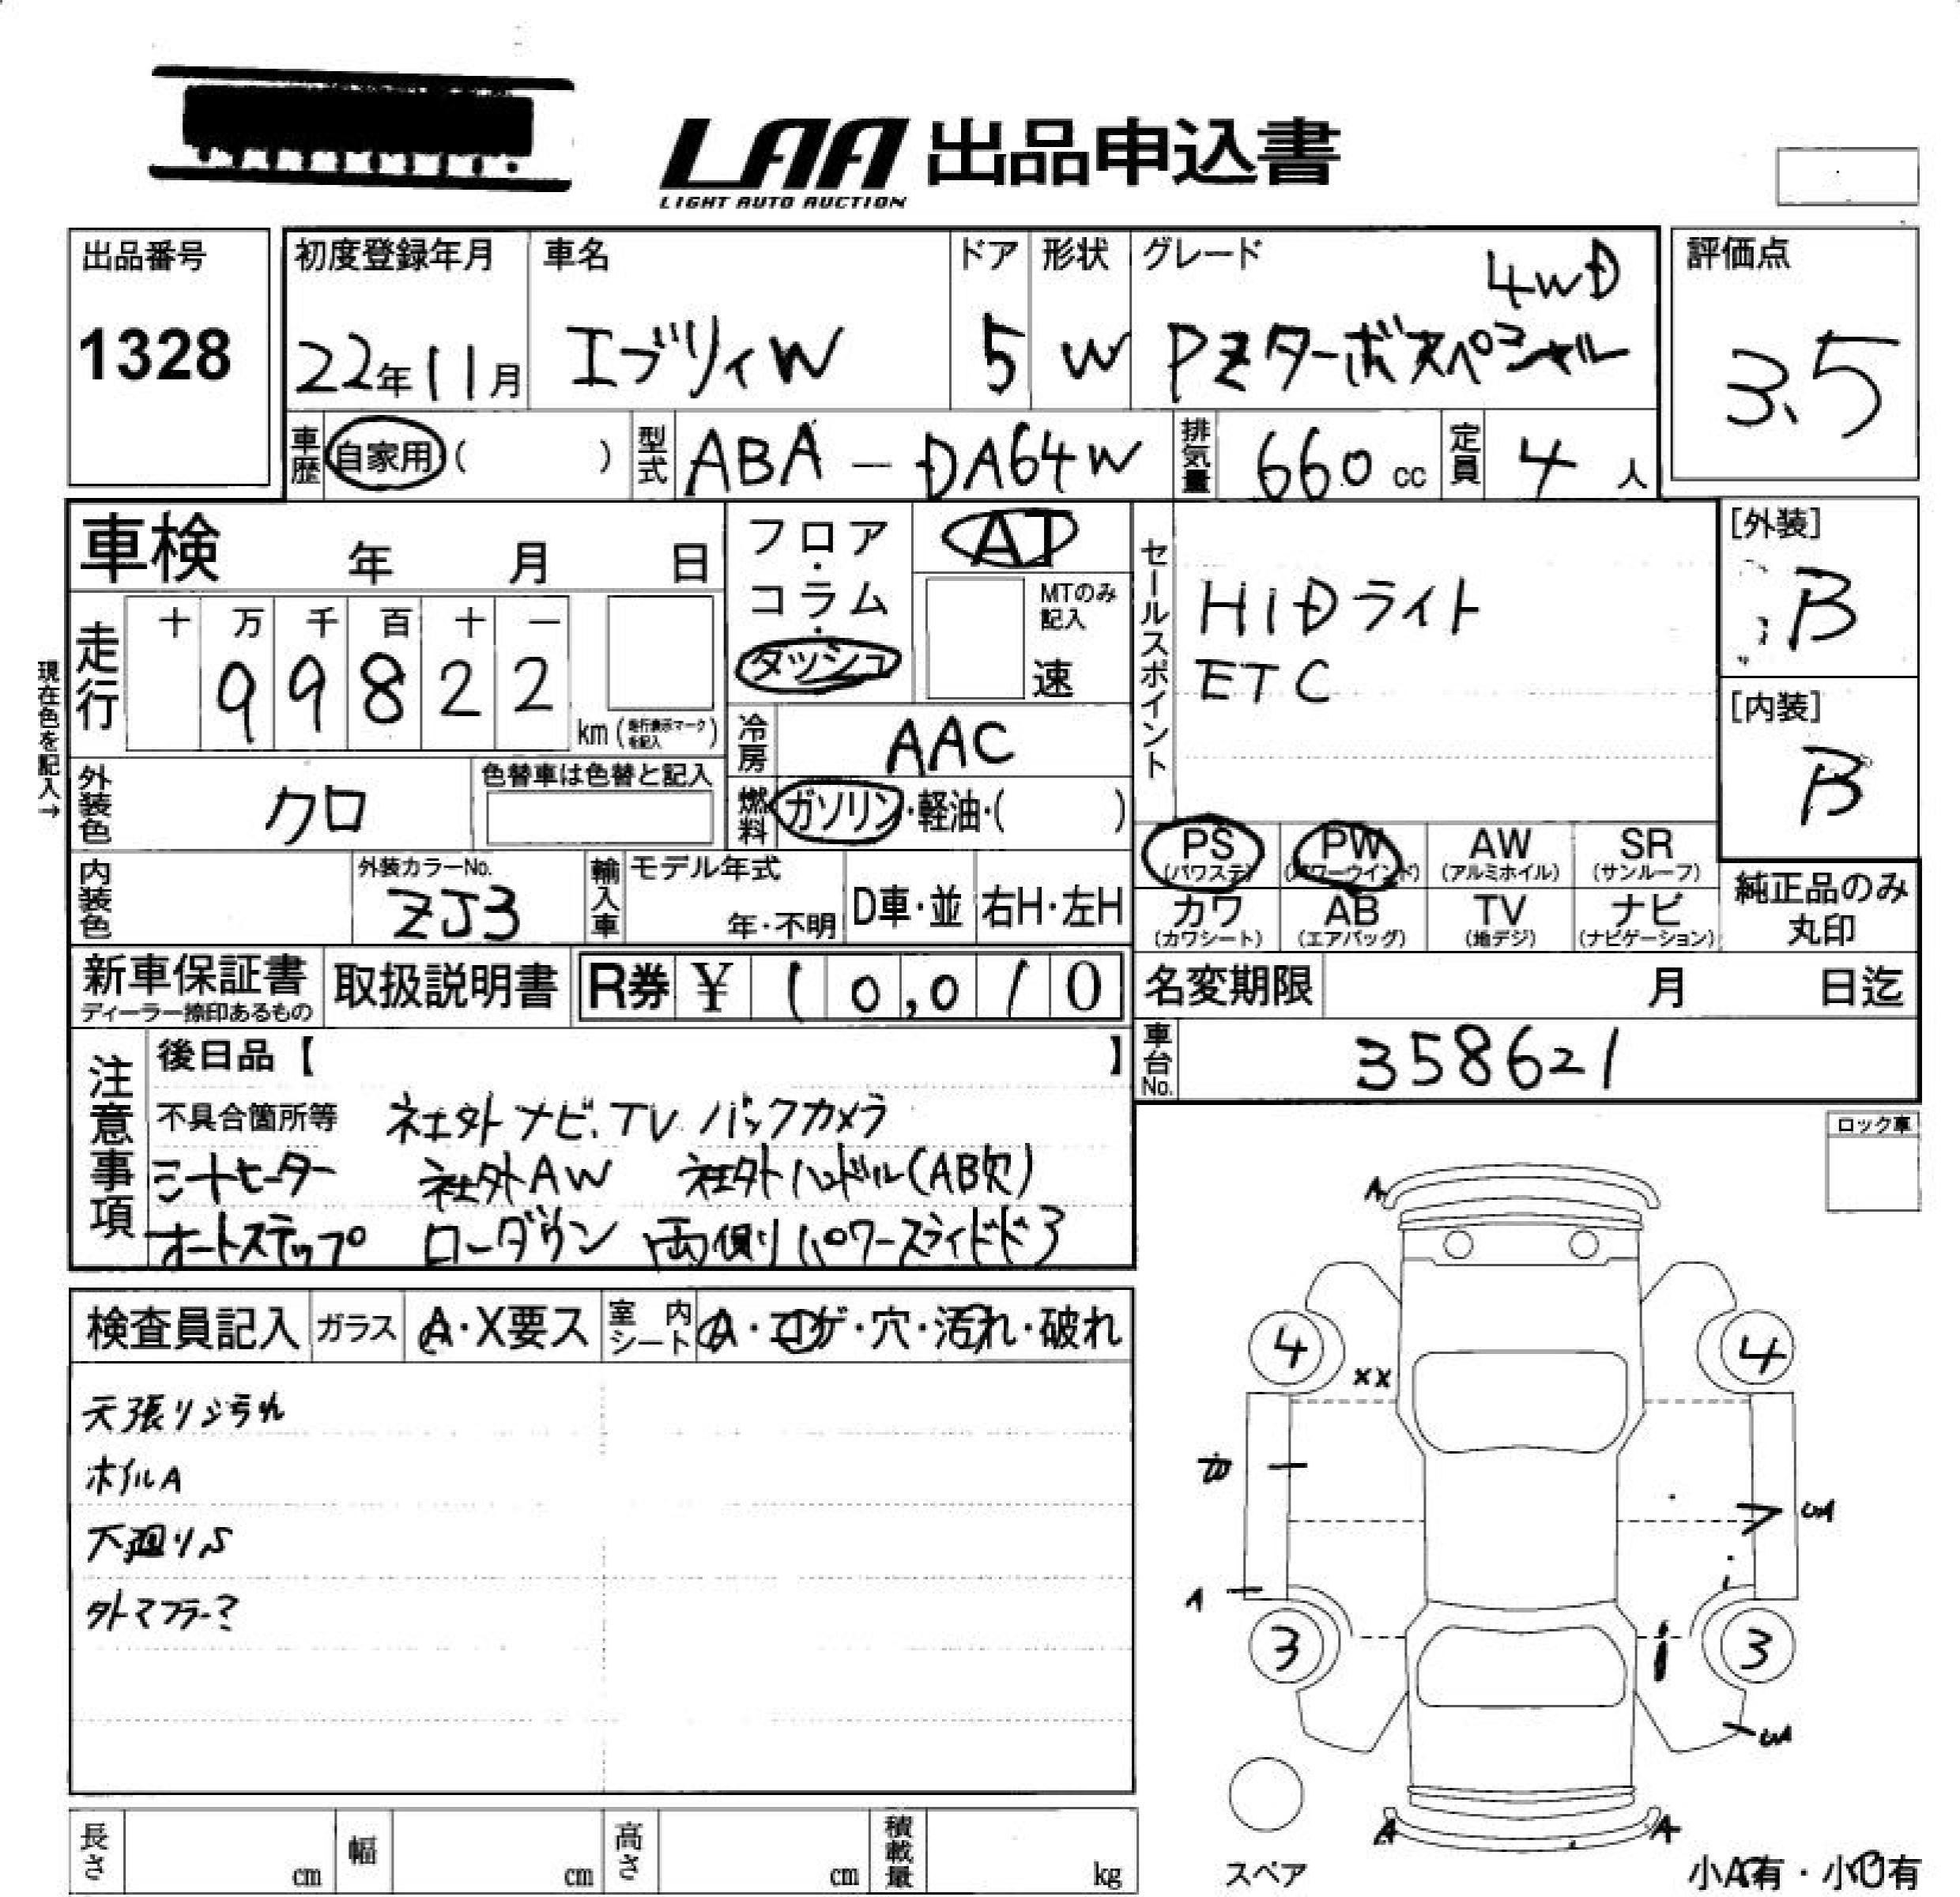 LAA 出品申込書
LIGHT AUTO AUCTION
出品番号
1328
初度登録年月
22年11月
車名
エブリィW
ドア
5
形状
W
グレード
4WD
PZターボスペシャル
評価点
3.5
車歴
自家用( )
型式
ABA-DA64W
排気量
660 cc
定員
4 人
車検 年 月 日
フロア・
コラム・
ダッシュ
AT
MTのみ
記入
速
セールスポイント
HIDライト
ETC
[外装]
B
[内装]
B
現在色を記入→
走行
十 万 千 百 十 一
9 9 8 2 2
km(走行表示マークを記入)
冷房
AAC
燃料
ガソリン・軽油・( )
外装色
クロ
色替車は色替と記入
内装色
外装カラーNo.
ZJ3
輸入車
モデル年式
年・不明
D車・並
右H・左H
PS
(パワステ)
PW
(パワーウインド)
AW
(アルミホイル)
SR
(サンルーフ)
カワ
(カワシート)
AB
(エアバッグ)
TV
(地デジ)
ナビ
(ナビゲーション)
純正品のみ
丸印
新車保証書
ディーラー捺印あるもの
取扱説明書
R券 ¥ 10,010
名変期限 月 日迄
車台No.
358621
注意事項
後日品【 】
不具合箇所等 社外ナビ.TV バックカメラ
シートヒーター 社外AW 社外ハンドル(AB欠)
オートステップ ローダウン 両側パワースライドドア
ロック車
検査員記入
ガラス
A・X要ス
室内
シート
A・コゲ・穴・汚れ・破れ
天張りシミ汚れ
ホイルA
下廻りS
外マフラー?
A
4
4
XX
UA
A
3
3
UA
A
A
スペア
小A有・小U有
長さ cm
幅 cm
高さ cm
積載量 kg